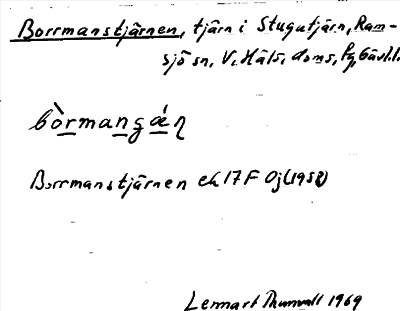 Borrmanstjärnen, tjärn i Stugutjärn, Ram-
sjö sn, V. Häls. doms, Gävl. l.
bòrmangǽn
Borrmanstjärnen ek 17 F Oj (1958)
Lennart Thunvall 1969